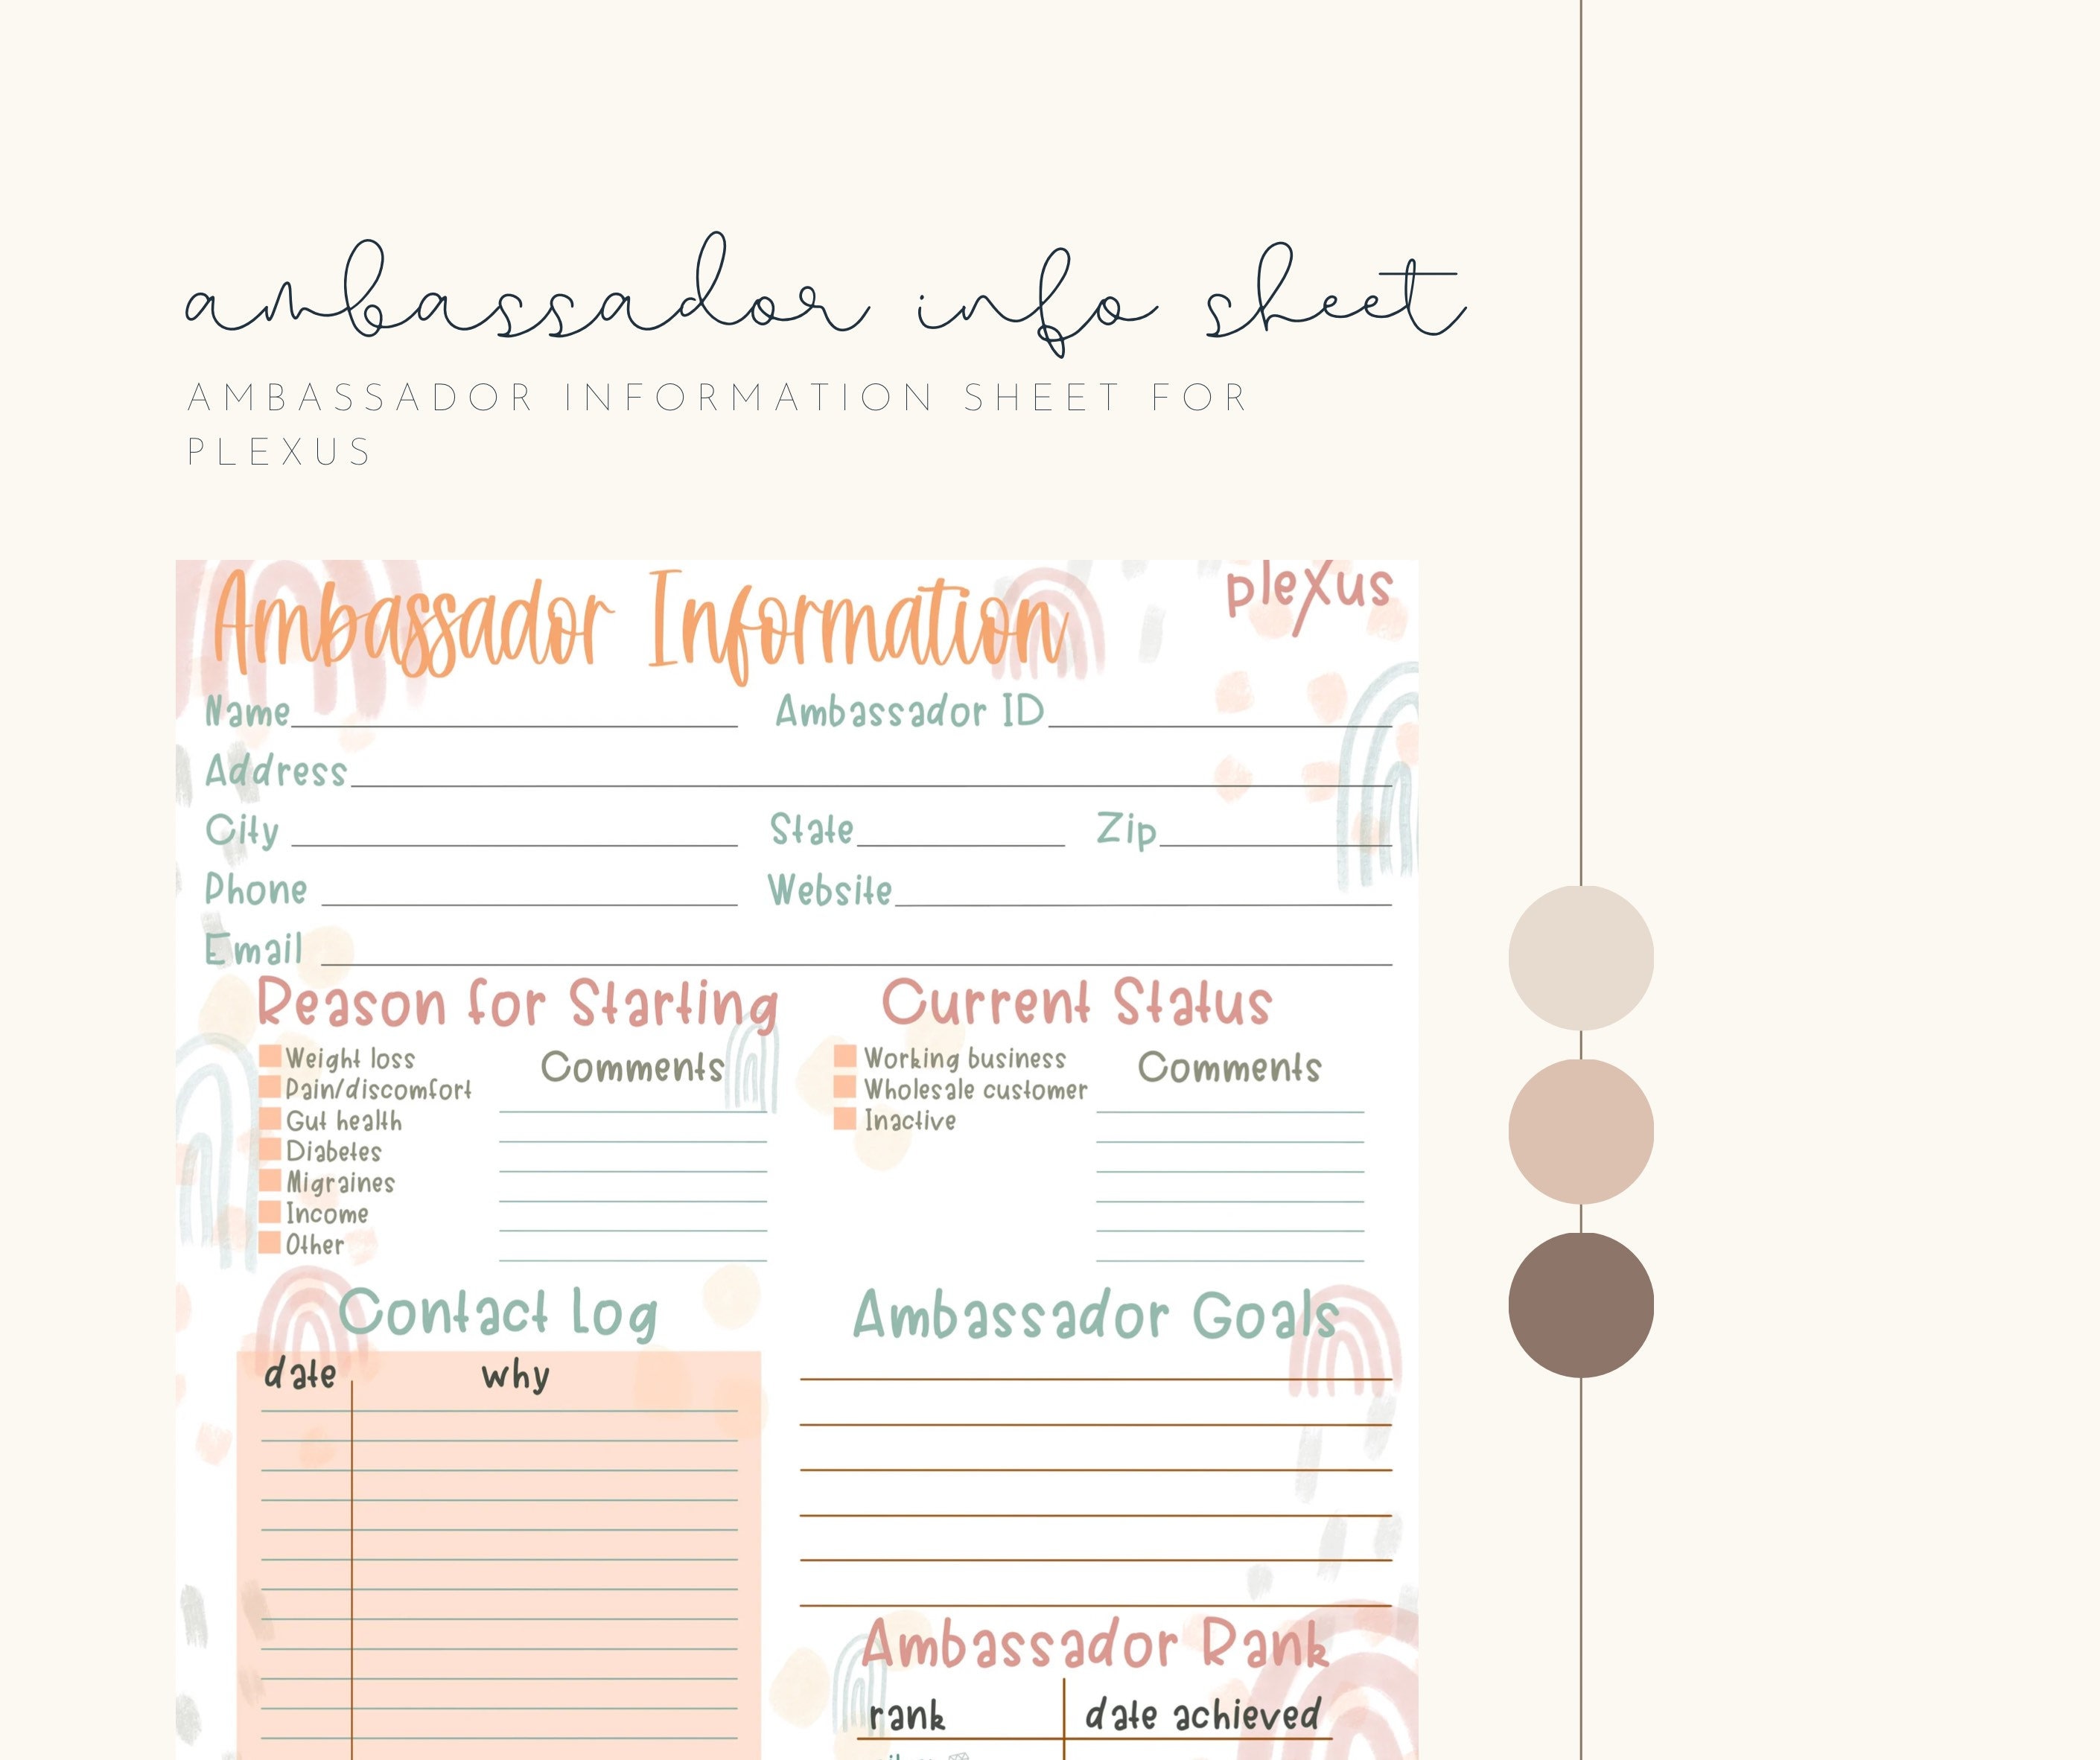 ambassador info sheet
AMBASSADOR INFORMATION SHEET FOR
PLEXUS
Ambassador Information
plexus
Name Ambassador ID
Address
City State Zip
Phone Website
Email
Reason for Starting
Weight loss
Pain/discomfort
Gut health
Diabetes
Migraines
Income
Other
Comments
Current Status
Working business
Wholesale customer
Inactive
Comments
Contact Log
date why
Ambassador Goals
Ambassador Rank
rank date achieved